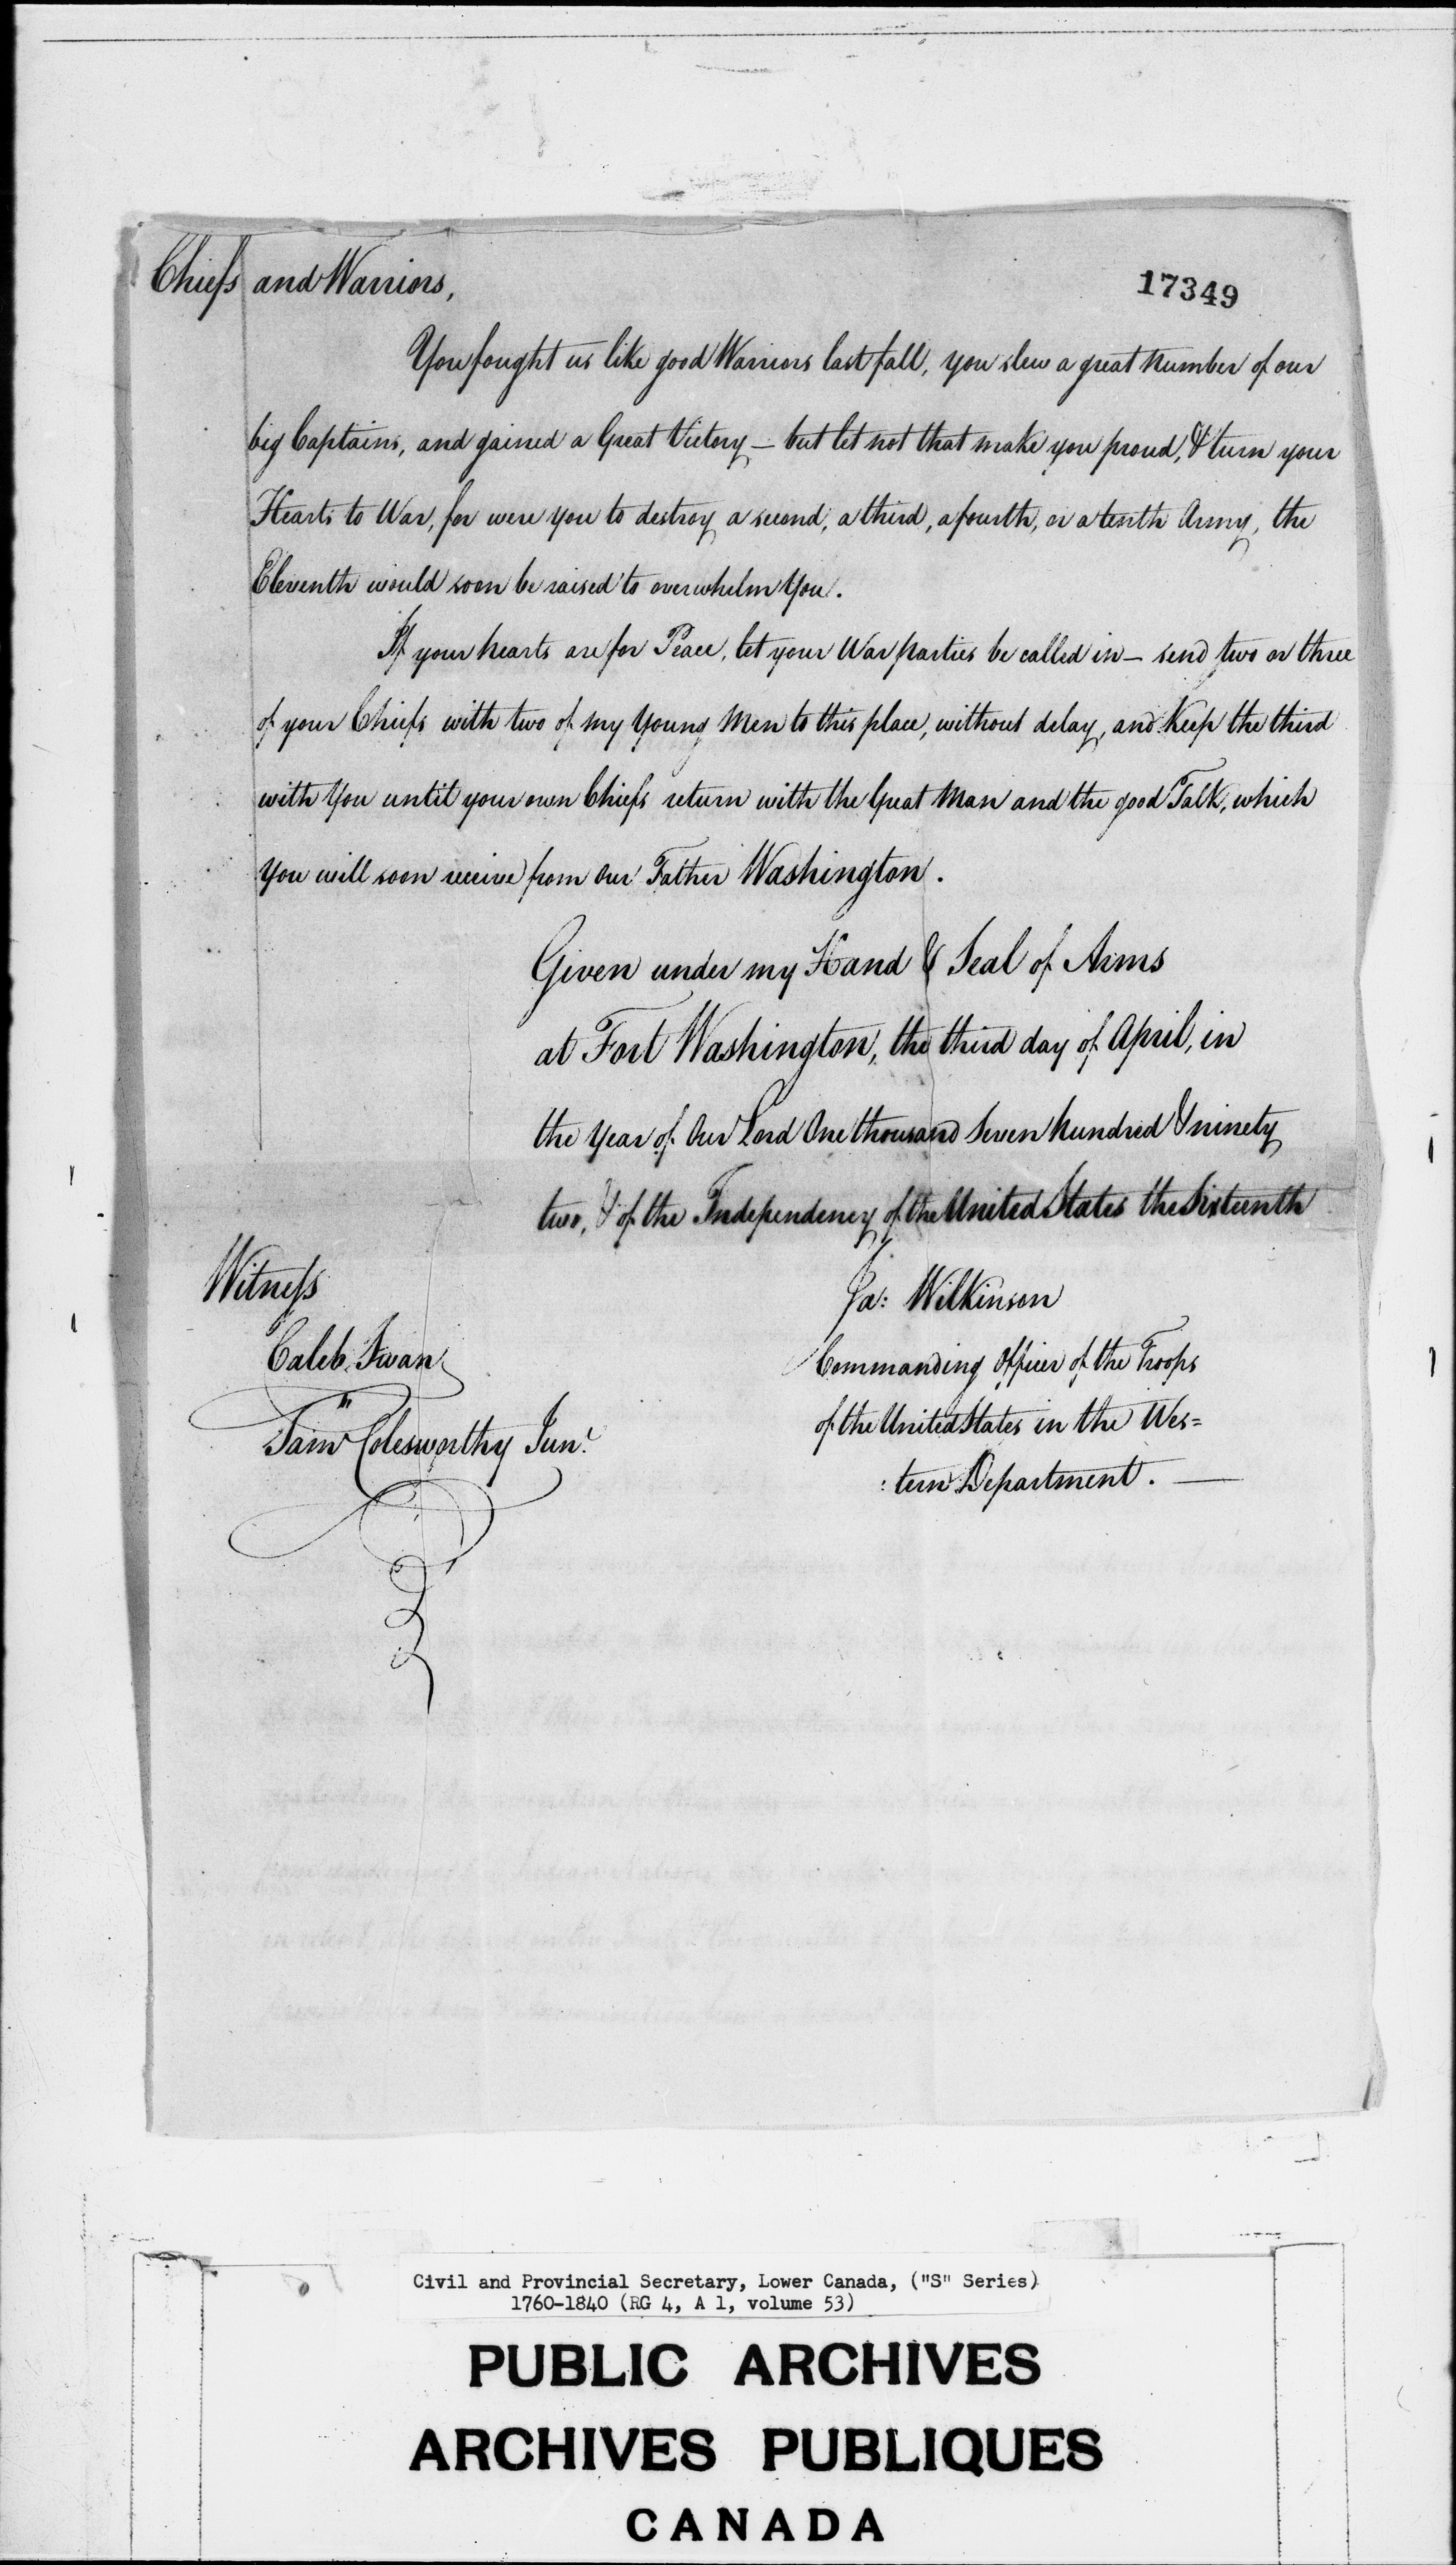 17349
Chiefs and Warriors,
You fought us like good Warriors last fall, you slew a great Number of our
big Captains, and gained a Great Victory — but let not that make you proud, & turn your
Hearts to War, for were you to destroy a second, a third, a fourth, or a tenth Army, the
Eleventh would soon be raised to overwhelm You.
If your hearts are for Peace, let your War parties be called in — send two or three
of your Chiefs with two of my Young Men to this place, without delay, and Keep the third
with You until your own Chiefs return with the Great Man and the good Talk, which
You will soon receive from Our Father Washington.
Given under my Hand & Seal of Arms
at Fort Washington, the third day of April, in
the Year of Our Lord One thousand Seven hundred & ninety
two, & of the Independency of the United States the Sixteenth
Witness
Ja: Wilkinson
Caleb Swan
Commanding Officer of the Troops
of the United States in the Wes=
Saml Colesworthy Junr.
:tern Department. —
Civil and Provincial Secretary, Lower Canada, ("S" Series)
1760-1840 (RG 4, A 1, volume 53)
PUBLIC ARCHIVES
ARCHIVES PUBLIQUES
CANADA